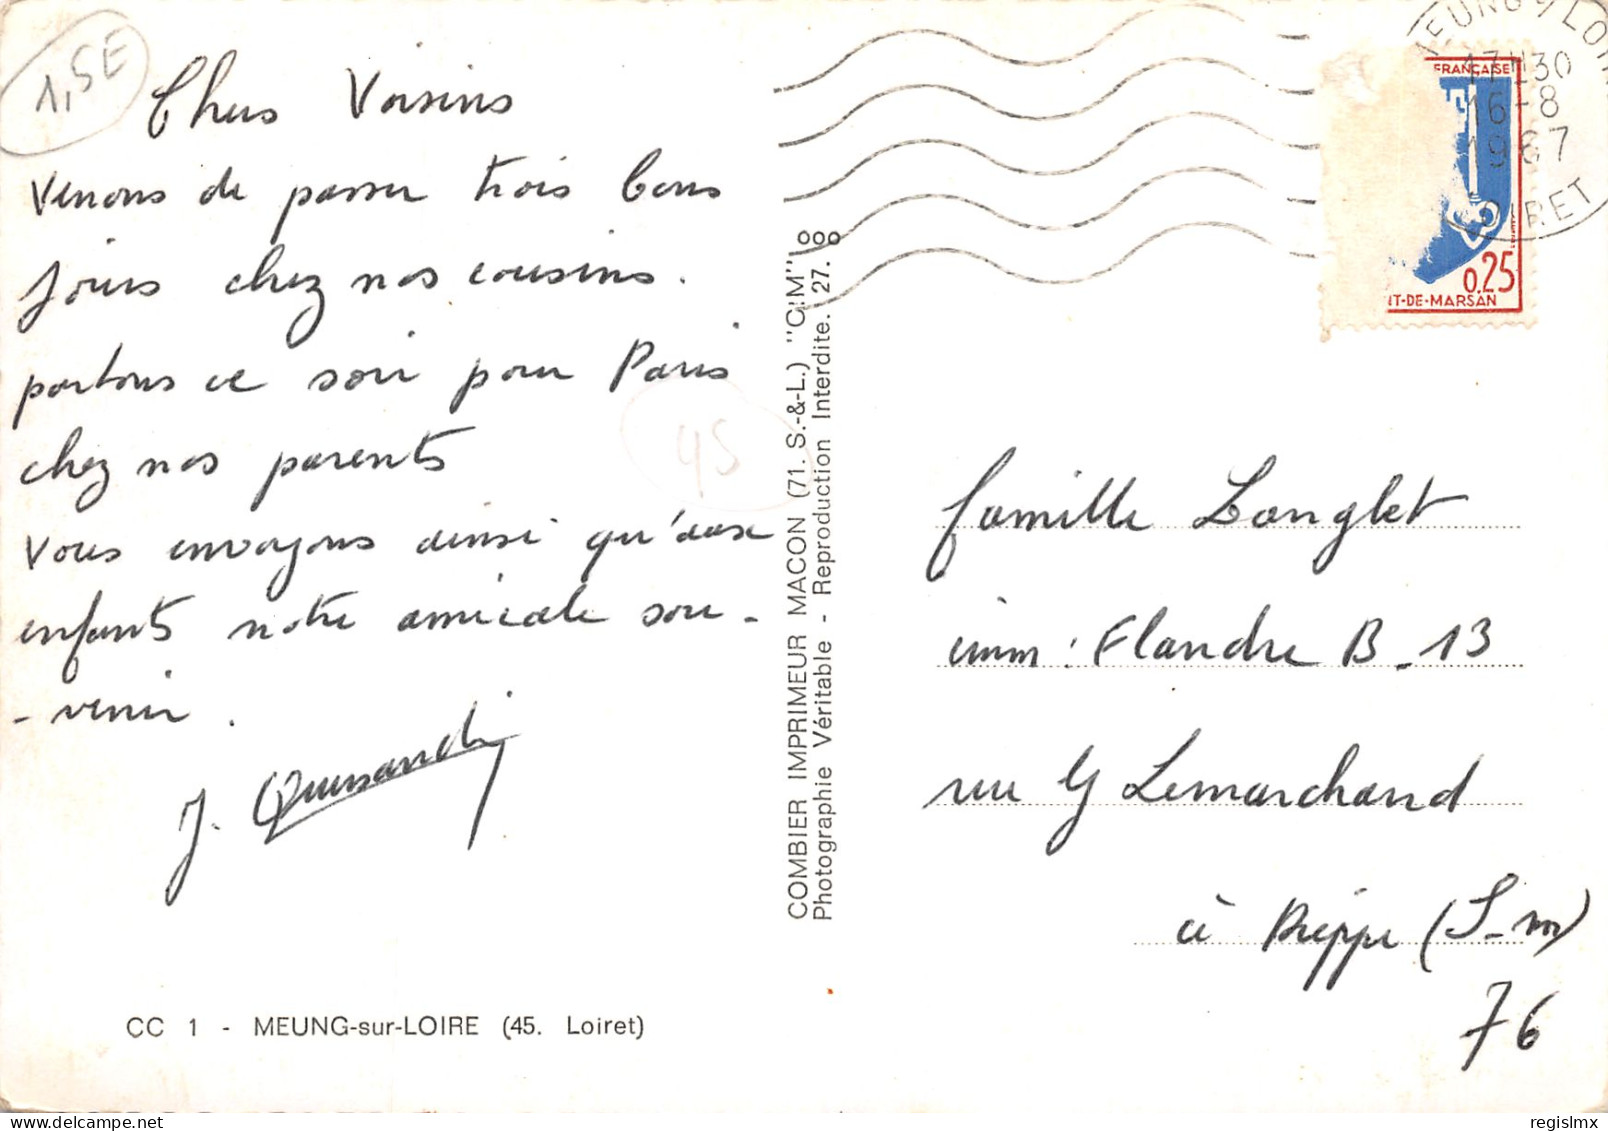 1,5E
Chers Voisins
Venons de passer trois bons
jours chez nos cousins.
partons ce soir pour Paris
chez nos parents
Vous envoyons ainsi qu'aux
enfants notre amicale sou-
-venir.
J.
45
CC 1 - MEUNG-sur-LOIRE (45. Loiret)
COMBIER IMPRIMEUR MACON (71. S.-&-L.) "CIM"
Photographie Véritable - Reproduction Interdite. 27. 000
MEUNG S/ LOIRE
17H30
16-8
1967
LOIRET
FRANÇAISE
0,25
NT-DE-MARSAN
famille Langlet
imm : Flandre B-13
rue G Lemarchand
à Dieppe (S-m)
76
regislmx